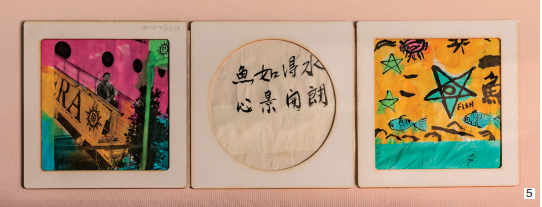 RA
魚如得水
心景開朗
魚
FISH
5